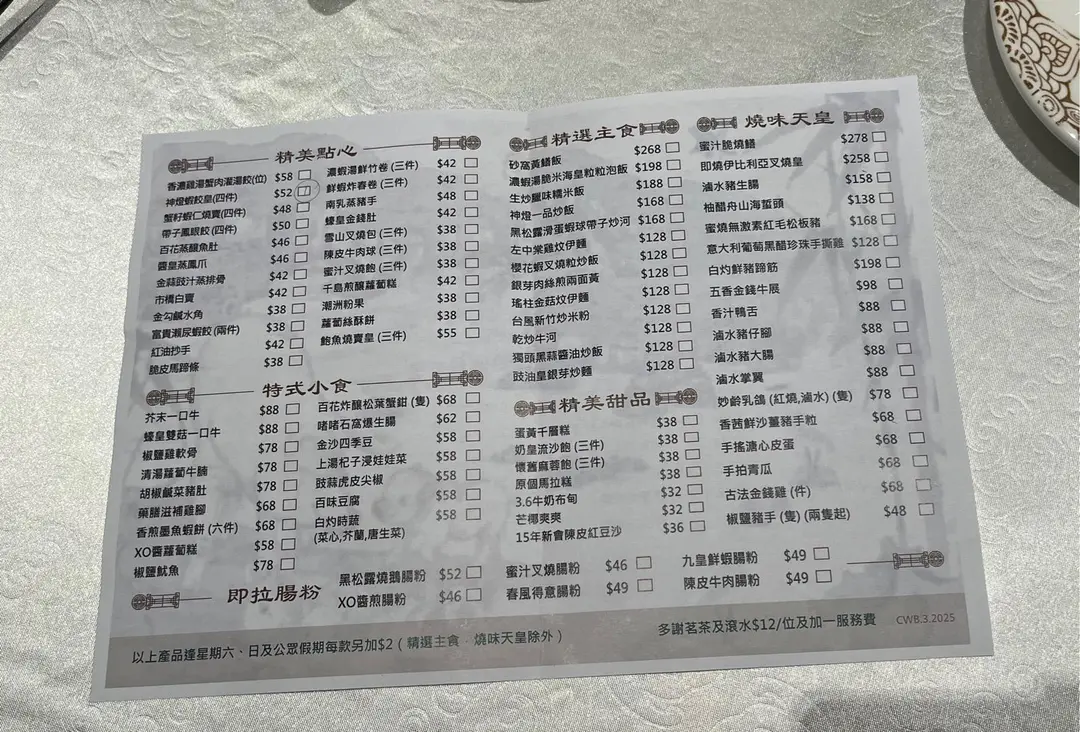 精美點心
香濃雞湯蟹肉灌湯餃(位) $58
神燈蝦餃皇(四件) $52
蟹籽蝦仁燒賣(四件) $48
帶子鳳眼餃 (四件) $50
百花蒸釀魚肚 $46
醬皇蒸鳳爪 $46
金蒜豉汁蒸排骨 $42
市橋白賣 $42
金勾鹹水角 $38
富貴瀨尿蝦餃 (兩件) $38
紅油抄手 $42
脆皮馬蹄條 $38
濃蝦湯鮮竹卷 (三件) $42
鮮蝦炸春卷 (三件) $42
南乳蒸豬手 $48
蠔皇金錢肚 $42
雪山叉燒包 (三件) $38
陳皮牛肉球 (三件) $38
蜜汁叉燒飽 (三件) $38
千島煎釀蘿蔔糕 $42
潮洲粉果 $38
蘿蔔絲酥餅 $38
鮑魚燒賣皇 (三件) $55
特式小食
芥末一口牛 $88
蠔皇雙菇一口牛 $88
椒鹽雞軟骨 $78
清湯蘿蔔牛腩 $78
胡椒鹹菜豬肚 $78
藥膳滋補雞腳 $68
香煎墨魚蝦餅 (六件) $68
XO醬蘿蔔糕 $58
椒鹽魷魚 $78
百花炸釀松葉蟹鉗 (隻) $68
啫啫石窩爆生腸 $62
金沙四季豆 $58
上湯杞子浸娃娃菜 $58
豉蒜虎皮尖椒 $58
百味豆腐 $58
白灼時蔬 $58
(菜心,芥蘭,唐生菜)
精選主食
砂窩黃鱔飯 $268
濃蝦湯脆米海皇粒粒泡飯 $198
生炒臘味糯米飯 $188
神燈一品炒飯 $168
黑松露滑蛋蝦球帶子炒河 $168
左中棠雞炆伊麵 $128
櫻花蝦叉燒粒炒飯 $128
銀芽肉絲煎兩面黃 $128
瑤柱金菇炆伊麵 $128
台風新竹炒米粉 $128
乾炒牛河 $128
獨頭黑蒜醬油炒飯 $128
豉油皇銀芽炒麵 $128
精美甜品
蛋黃千層糕 $38
奶皇流沙飽 (三件) $38
懷舊麻蓉飽 (三件) $38
原個馬拉糕 $38
3.6牛奶布甸 $32
芒椰爽爽 $32
15年新會陳皮紅豆沙 $36
燒味天皇
蜜汁脆燒鱔 $278
即燒伊比利亞叉燒皇 $258
滷水豬生腸 $158
柚醋舟山海蜇頭 $138
蜜燒無激素紅毛松板豬 $168
意大利葡萄黑醋珍珠手撕雞 $128
白灼鮮豬蹄筋 $198
五香金錢牛展 $98
香汁鴨舌 $88
滷水豬仔腳 $88
滷水豬大腸 $88
滷水掌翼 $88
妙齡乳鴿 (紅燒,滷水) (隻) $78
香茜鮮沙薑豬手粒 $68
手搖溏心皮蛋 $68
手拍青瓜 $68
古法金錢雞 (件) $68
椒鹽豬手 (隻) (兩隻起) $48
即拉腸粉
黑松露燒鵝腸粉 $52
XO醬煎腸粉 $46
蜜汁叉燒腸粉 $46
春風得意腸粉 $49
九皇鮮蝦腸粉 $49
陳皮牛肉腸粉 $49
以上產品逢星期六、日及公眾假期每款另加$2 ( 精選主食﹑燒味天皇除外 )
多謝茗茶及滾水$12/位及加一服務費 CWB.3.2025